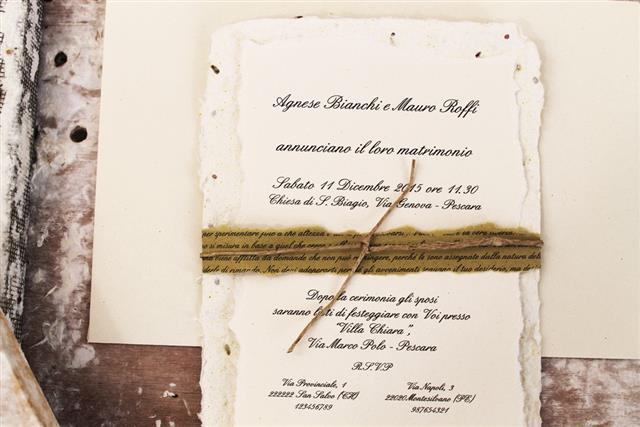 Agnese Bianchi e Mauro Roffi
annunciano il loro matrimonio
Sabato 11 Dicembre 2015 ore 11.30
Chiesa di S. Biagio, Via Genova - Pescara
per sperimentare fino a che altezza
si misura in base a quel che
afflitta da domande che non può perché le sono assegnate dalla natura
Non gli avvenimenti seguano il tuo desiderio, ma
Dopo la cerimonia gli sposi
saranno lieti di festeggiare con Voi presso
"Villa Chiara",
Via Marco Polo - Pescara
R.S.V.P
Via Provinciale, 1
222222 San Salvo (CH)
123456789
Via Napoli, 3
22020 Montesilvano (PE)
987654321